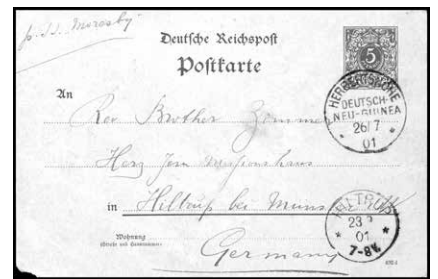 p. S.S. Moresby
Deutsche Reichspost
Postkarte
5
HERBERTSHÖHE
DEUTSCH-
NEU-GUINEA
26/7
01
An
Rev Brother Zimme
Herz Jesu Missionshaus
in Hiltrup bei Müns
HILTRUP
23
01
7-8V.
Wohnung
(Straße und Hausnummer)
Germany